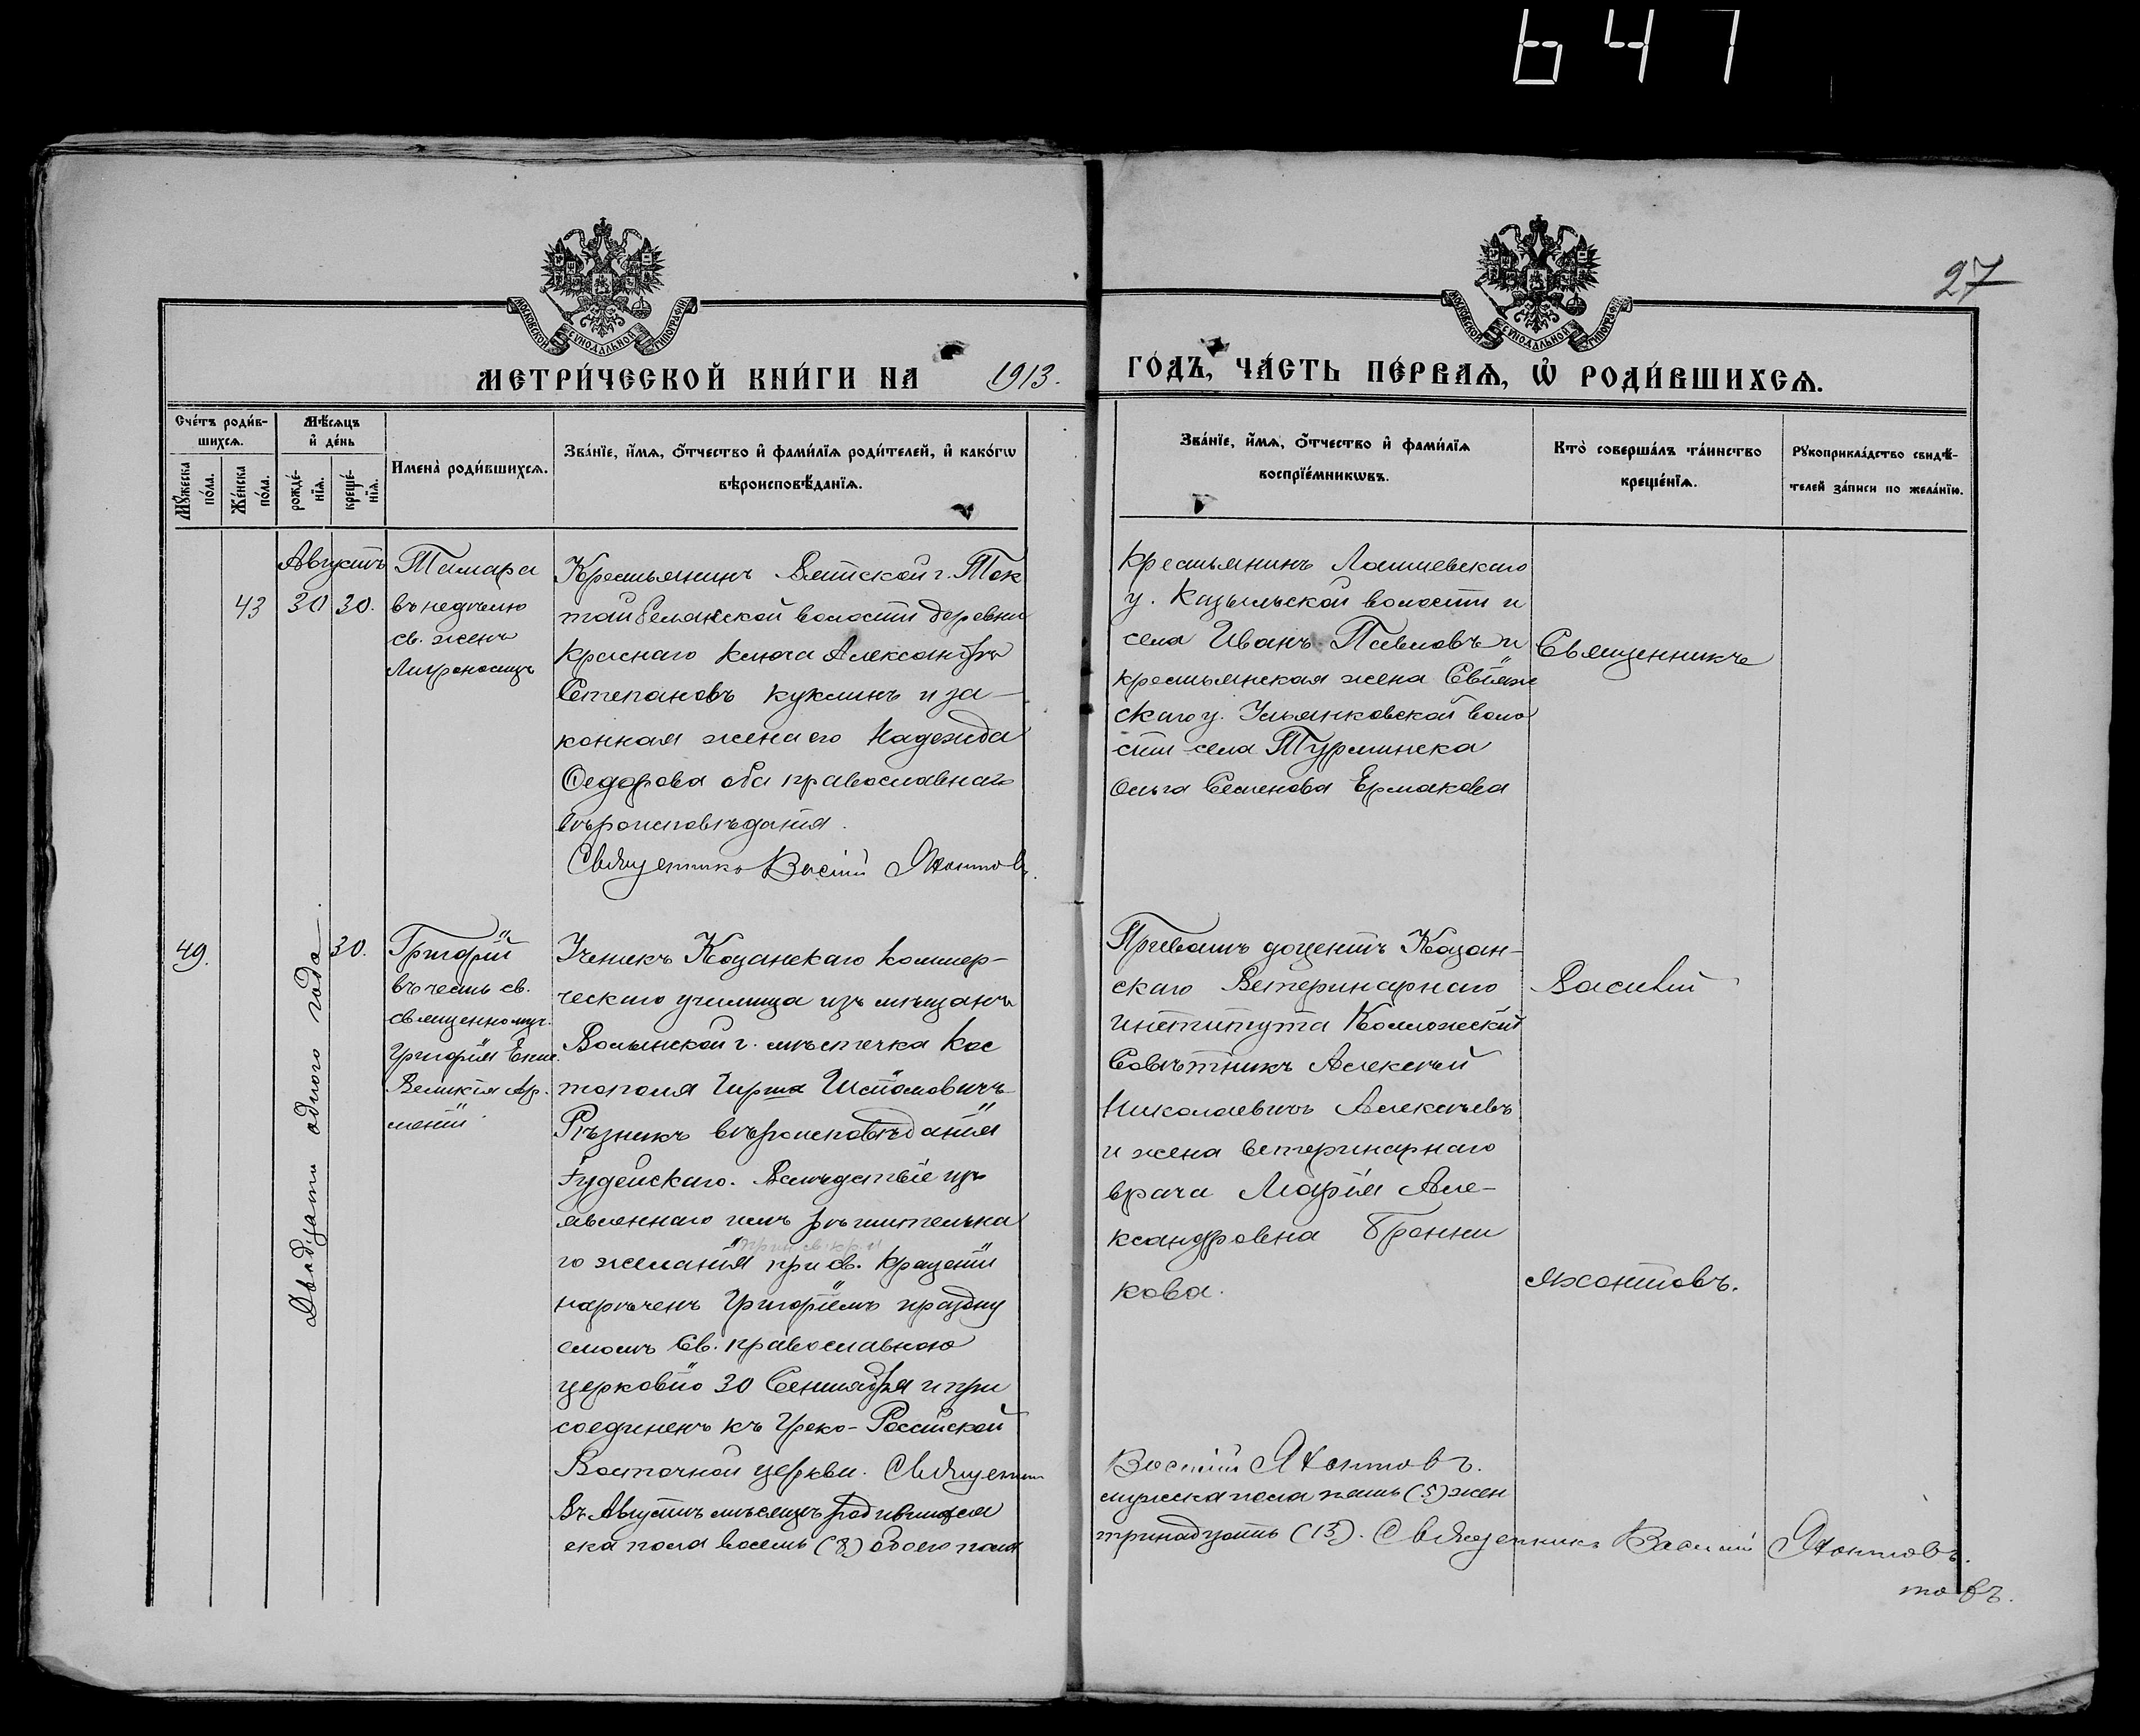 647
27
МОСКОВСКОЙ СѴНОДАЛЬНОЙ ТИПОГРАФІИ
МОСКОВСКОЙ СѴНОДАЛЬНОЙ ТИПОГРАФІИ
МЕТРИ́ЧЕСКОЙ КНИ́ГИ НА 1913. ГО́ДЪ, ЧА́СТЬ ПЕ́РВАѦ, Ѡ҆ РОДИ́ВШИХСѦ.
Сче́тъ роди́в-
шихсѧ.
Мꙋ́жеска по́ла.
Же́нска по́ла.
Мѣ́сѧцъ
и҆ де́нь
рожде́-
нїѧ.
креще́-
нїѧ.
Имена̀ роди́вшихсѧ.
Зва́нїе, и҆́мѧ, ѻ҆́тчество и҆ фами́лїѧ роди́телей, и҆ како́гѡ
вѣроисповѣ́данїѧ.
Зва́нїе, и҆́мѧ, ѻ҆́тчество и҆ фами́лїѧ
воспрїе́мникѡвъ.
Кто̀ соверша́лъ та́инство
креще́нїѧ.
Рꙋкоприкла́дство свидѣ́-
телей за́писи по жела́нїю.
Августъ
43
30
30.
Тамара
въ недѣлю
св. женъ
Мироносицъ
Крестьянинъ Вятской г.
волости деревни
Краснаго Ключа Александръ
Степановъ Куклинъ и за-
конная жена его Надежда
Ѳедорова оба православнаго
вѣроисповѣданія.
Священникъ Василій Яхонтовъ.
Крестьянинъ Лаишевскаго
у. Казыльской волости и
села Иванъ Павловъ и
крестьянская жена Свіяж
скаго у. Ульянковской воло
сти села Турминска
Ольга Семенова Ермакова
Священникъ
49.
Двадцати одного года.
30.
Григорій
въ честь св.
священномуч.
Григорія Епис.
Великія Ар-
меніи
Ученикъ Казанскаго Коммер-
ческаго училища изъ мѣщанъ
Волынской г. мѣстечка Кос
тополя Гирша
Рѣзникъ вѣроисповѣданія
Іудейскаго. Вслѣдствіе изъ
явленнаго имъ рѣшительна
го желанія при св. Крещеніи
нареченъ Григоріемъ праздну
емомъ Св. православною
церковію 30 Сентября и при
соединенъ къ Греко-Россійской
Восточной церкви. Священникъ
Въ Августѣ мѣсяцѣ родившихся
ска пола восемь (8) обоего пола
Приватъ доцентъ Казан-
скаго Ветеринарнаго
института Коллежскій
Совѣтникъ Алексѣй
Николаевичъ Алексѣевъ
и жена ветеринарнаго
врача Марія Але-
ксандровна Бронни
кова.
Василій
Яхонтовъ.
Василій Яхонтовъ.
мужска пола пять (5) жен
тринадцать (13). Священникъ Василій Яхонтовъ.
товъ.